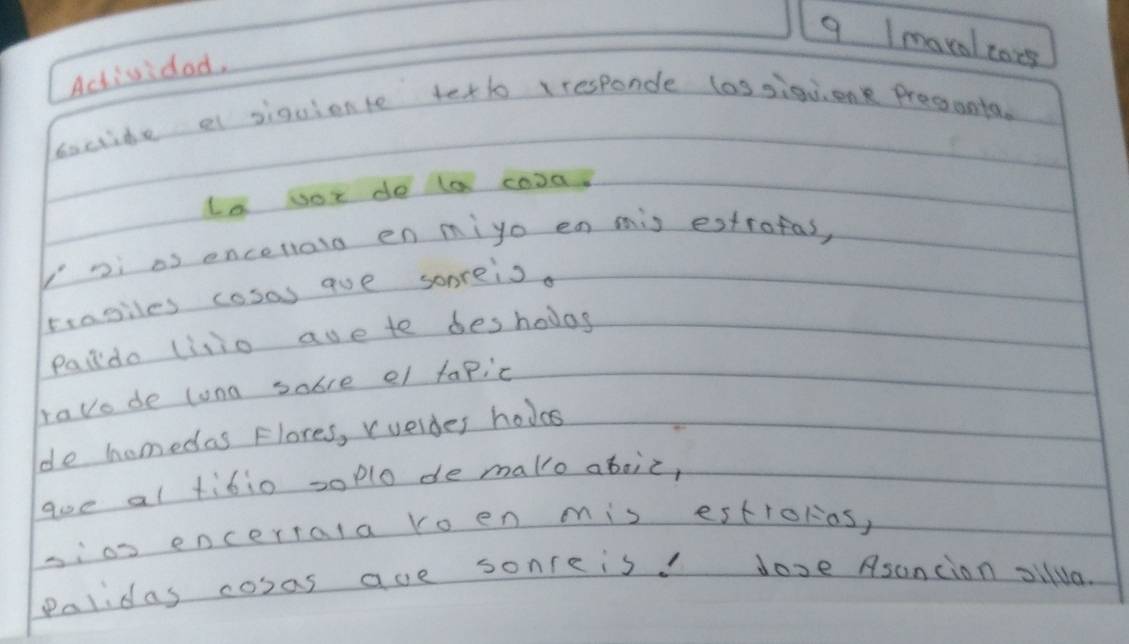 9 1 marzo 2023
Actividad.
Escribe el siguiente texto y responde los siguiene Pregunta.
La voz de la cosa.
¡ si os encerrara en mi yo en mis estrofas,
Fragiles cosas que sonreis.
Palido lirio que te deshojas
rayo de luna sobre el tapiz
de humedas Flores, y verdes hojas
que al tibio soplo de mayo abriz,
si os encerrara yo en mis estrofas,
palidas cosas que sonreis!
Jose Asuncion silva.